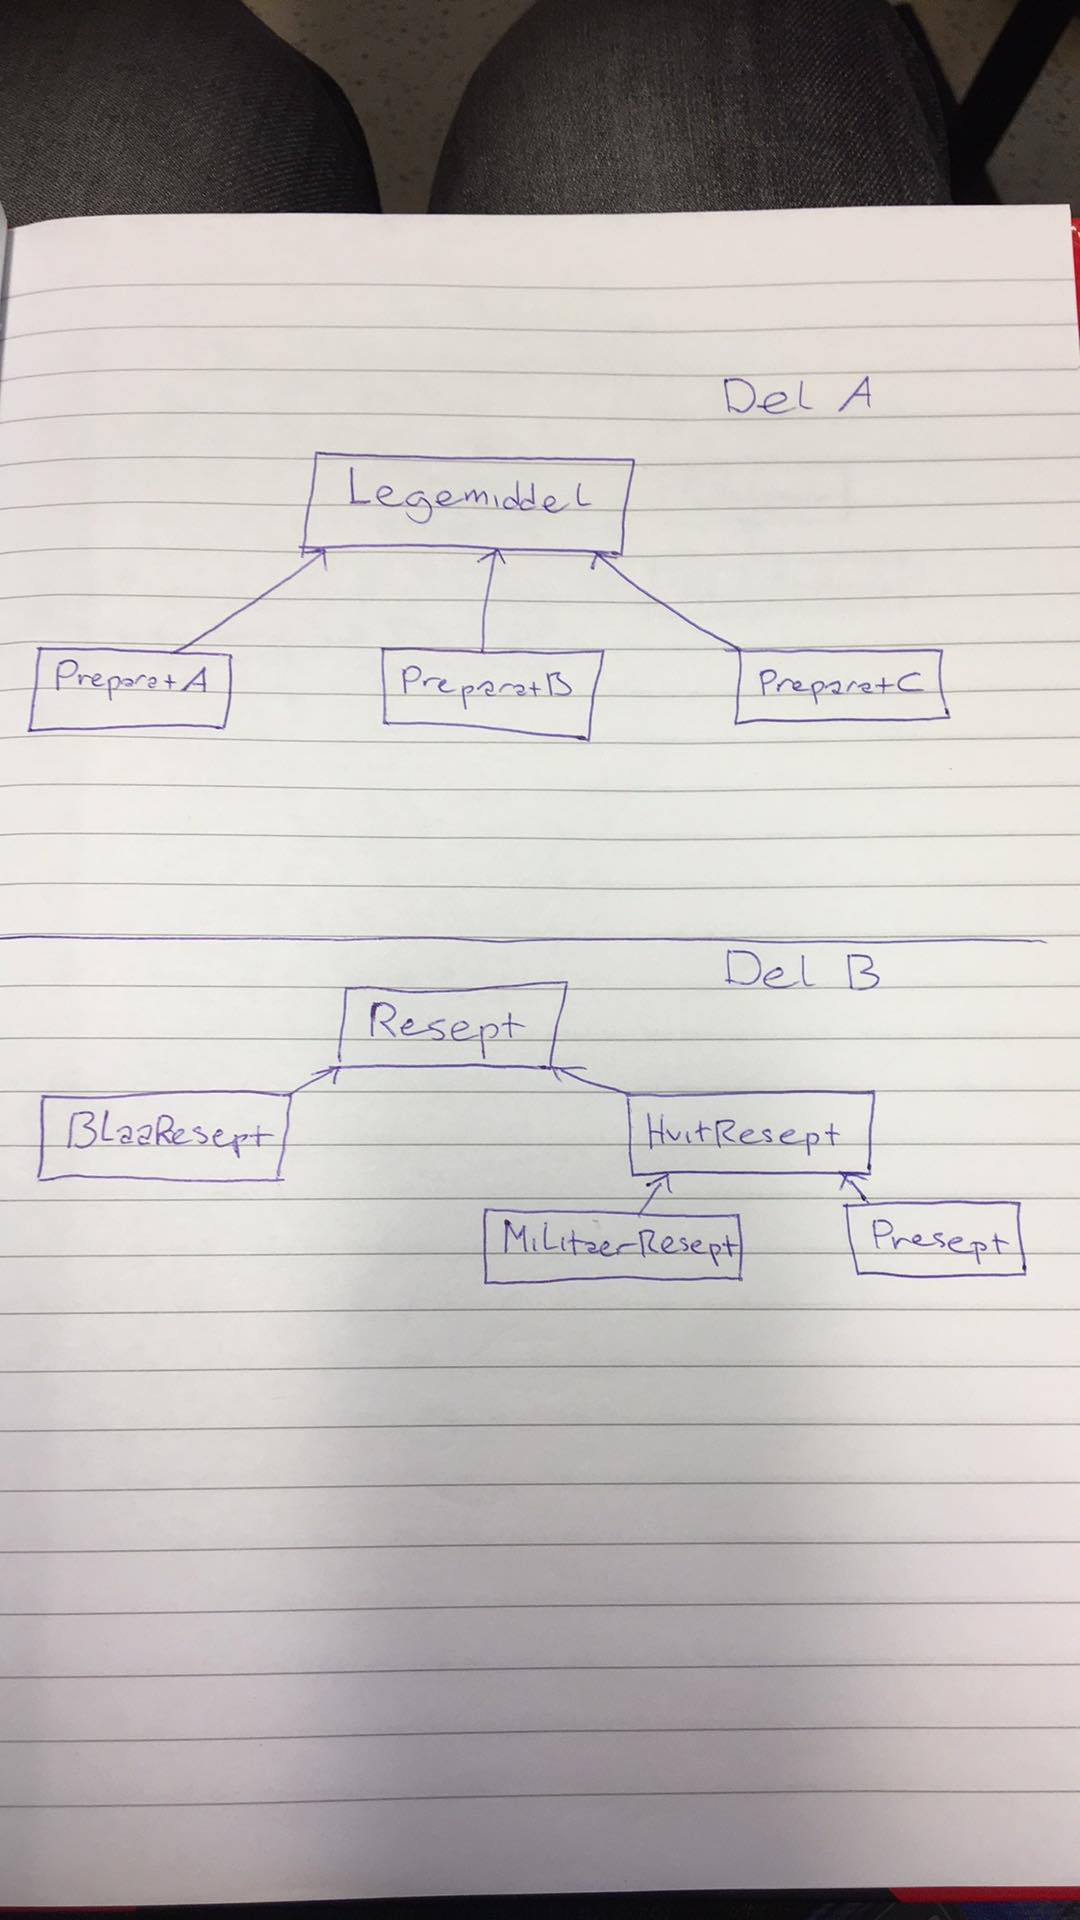 Del A
Legemiddel
PreparatA
PreparatB
PreparatC
Del B
Resept
BlaaResept
HvitResept
MilitaerResept
Presept